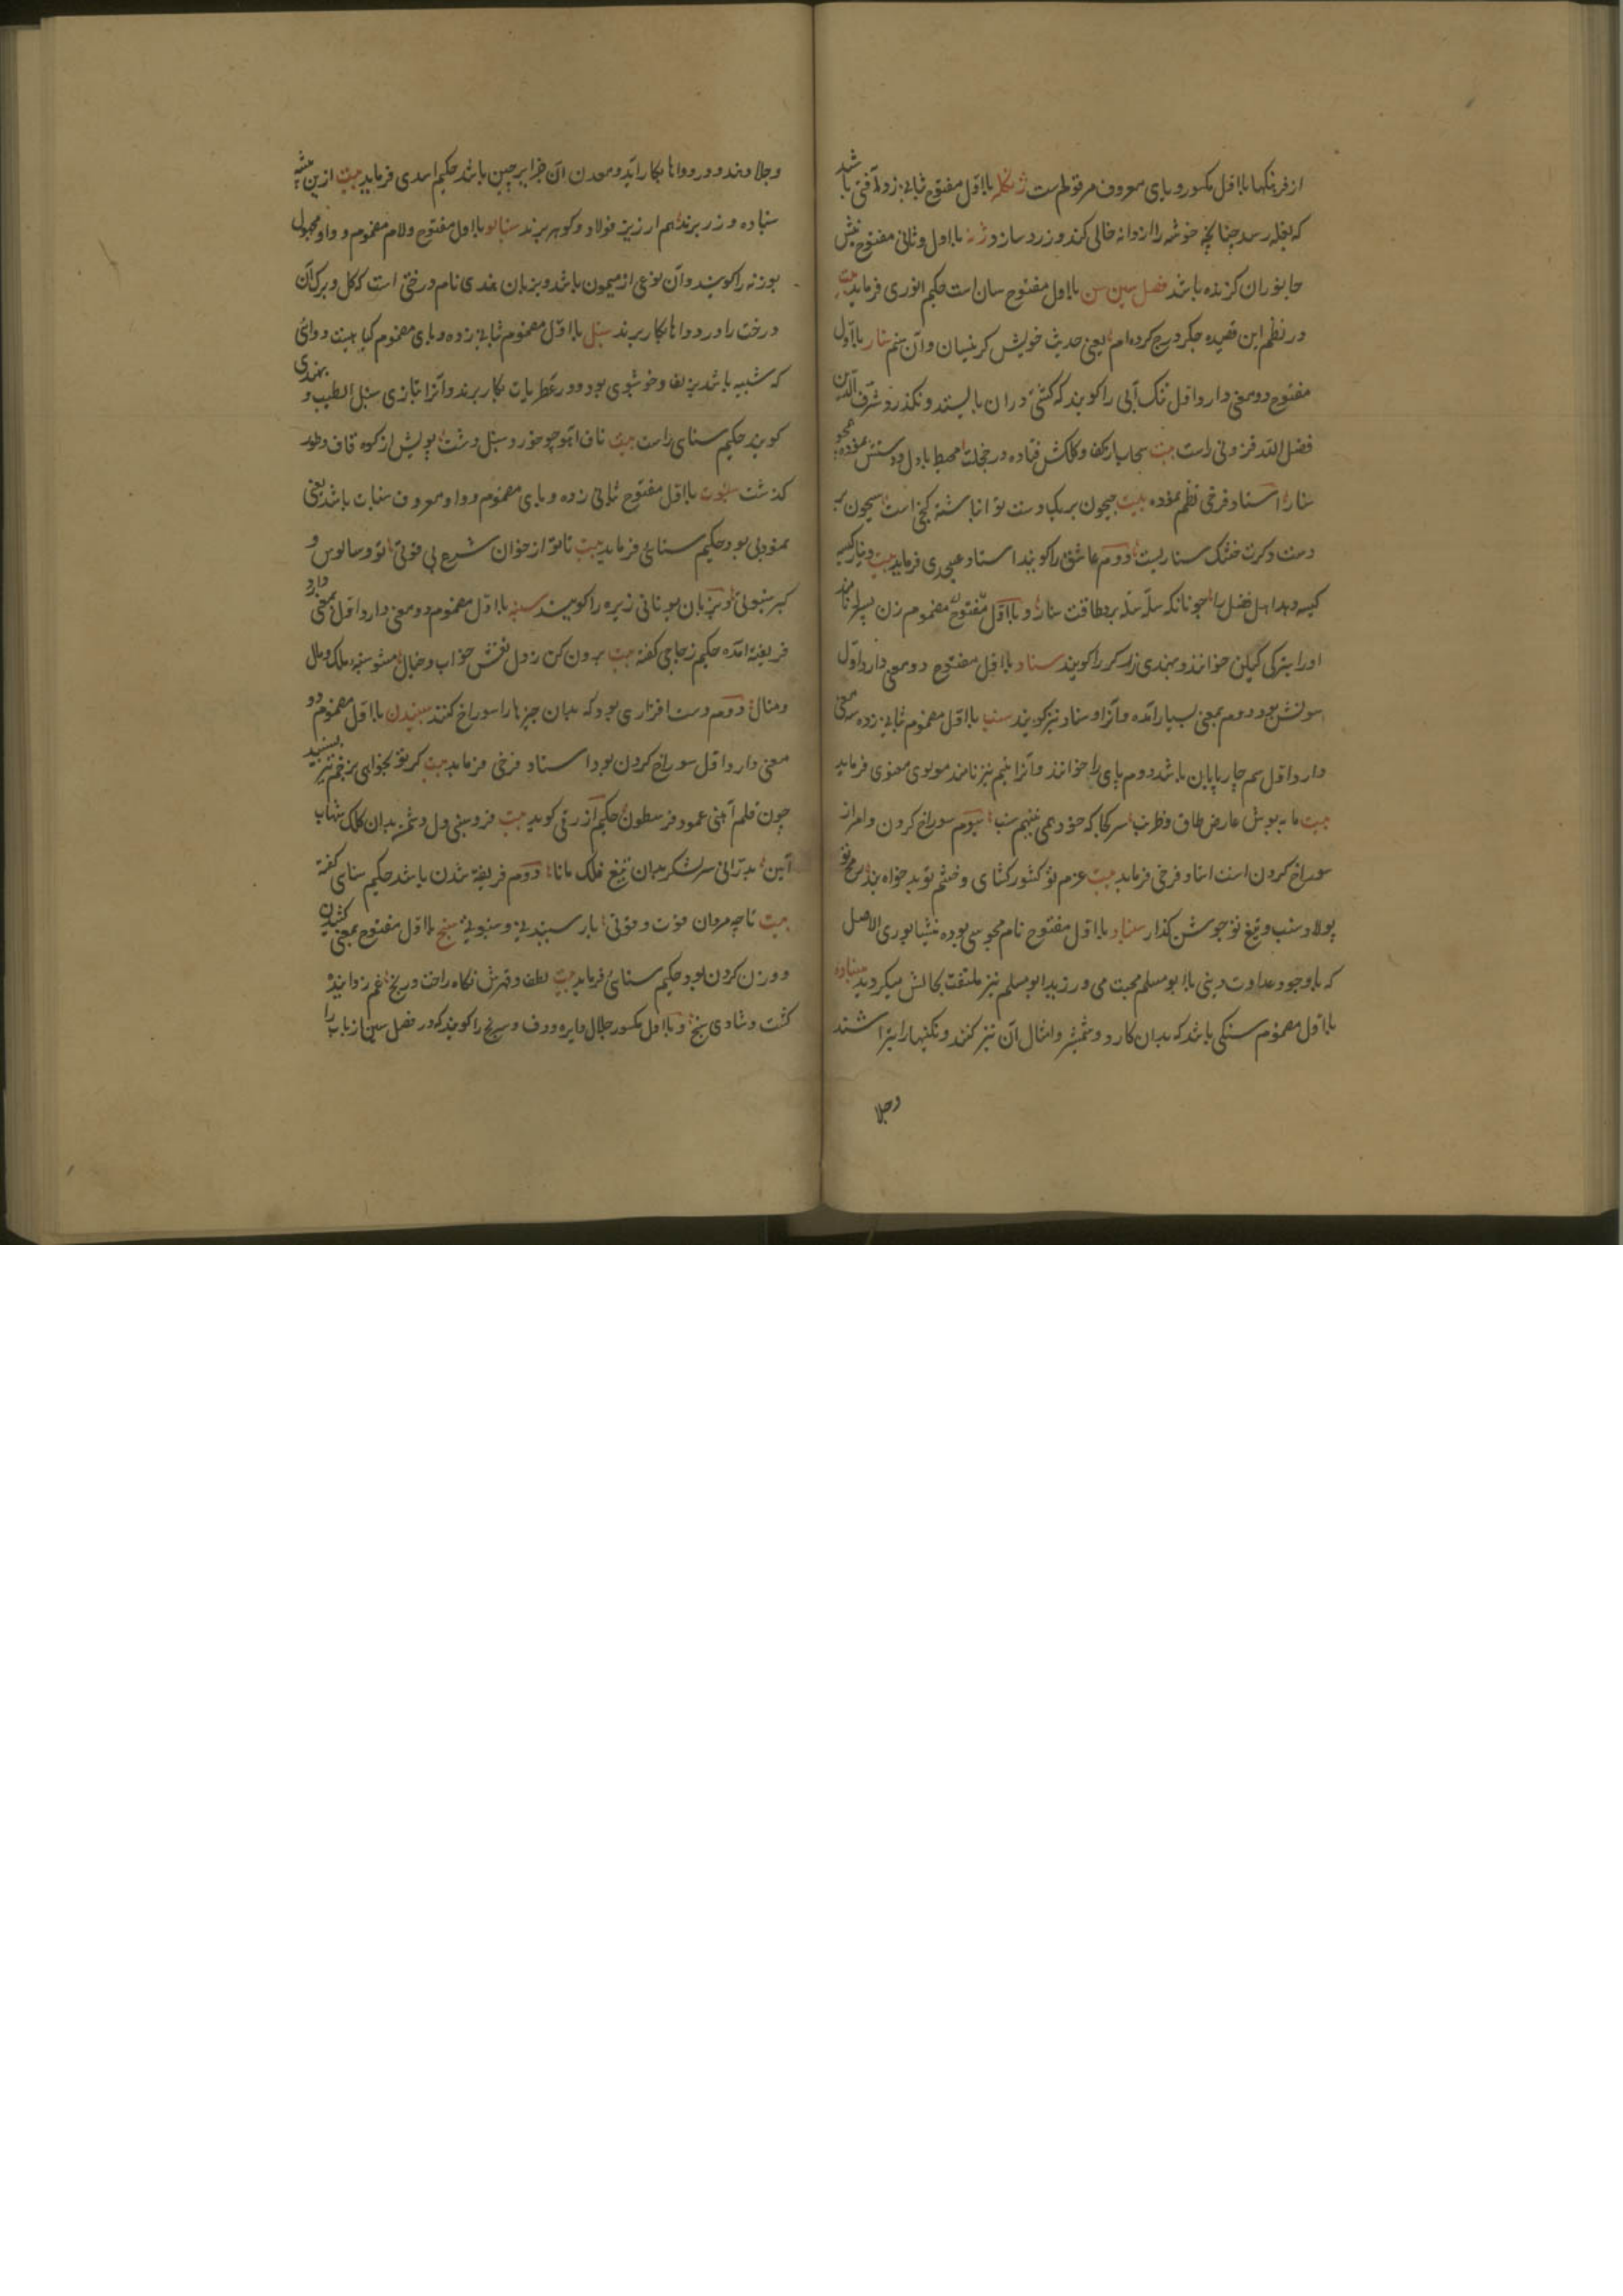 از فرهنکها با اول مکسور و یای معروف مرقوم است ژنکله با اول مفتوح بثانی زده آفتی باشد
که بغله رسد چنانچه خوشه را از دانه خالی کند و زرد سازد با اول و ثانی مفتوح نیش
جانوران کزنده باشد فصل سین سن با اول مفتوح سان است حکیم انوری فرماید بیت
در نظم این قصیده جکر درج کرده ام یعنی حدیث خویش کر نیسان و آن منم سنار با اول
مفتوح دو معنی دارد اول تنک آبی را کویند که کشتی در ان بایستد و نکذرد شرف الدین
فضل الله قزوینی راست بیت سحاب از کف و کلکش فتاده در خجلت محیط با دل و دستش نموده همچو
سنار استاد فرخی نظم نموده بیت جیحون بر یک دست تو انباشته کنجی است سیحون بر
دست و کرت خشک سناریست دوم عاشق را کویند استاد عسجدی فرماید بیت دینار کیسه
کیسه دهد اهل فضل را چونانکه سله سله برد طاقت سنار و با اول مفتوح مضموم زن پسر را نامند
او را بترکی کیلن خوانند و بهندی را کویند سناد با اول مفتوح دو معنی دارد اول
بود دوم بمعنی بسیار آمده و آنرا وسناد نیز کویند سنب با اول مضموم بثانی زده سه معنی
دارد اول سم چارپایان باشد دوم پای را خوانند و آنرا نیز نامند مولوی معنوی فرماید
بیت عارض طاق هر کجا که خود همی نهم سنب سیوم سوراخ کردن و امر از
سوراخ کردن است استاد فرخی فرماید بیت عزم تو کشور کشای و خشم تو بد خواه رمح تو
پولاد سنب و تیغ تو جوشن کذار سنباد با اول مفتوح نام مجوسی بوده نیشابوری الاصل
که با وجود عداوت دینی با ابو مسلم محبت می ورزید ابو مسلم نیز ملتفت بحالش میکردید سنباده
با اول مضموم سنکی باشد که بدان کارد و شمشیر و امثال آن تیز کنند و نکینها را بتراشند
وجلا
وجلا دهند و در دواها بکار آید و معدن آن جزایر چین باشد حکیم اسدی فرماید بیت ازین بیشه
سنباده و زر برند هم ارزیز و فولاد و کوهر برند با اول مفتوح و لام مضموم و واو مجهول
بوزنه را کویند و آن نوعی از میمون باشد و بزبان هندی نام درختی است که کل و برک آن
درخت را در دواها بکار برند سنبل با اول مضموم بثانی زده و بای مضموم کیاهیست دوائی
که شبیه باشد بزلف و خوشبوی بود و در عطریات بکار برند و آنرا بتازی سنبل الطیب و بهندی
کویند حکیم سنای راست بیت ناف آهو چو خورد سنبل دشت بویش از کوه قاف و طور
کذشت سنبوت با اول مفتوح بثانی زده و بای مضموم و واو معروف سنبات باشد یعنی
نمودنی بود حکیم سنائی فرماید بیت تا تو از خوان شرع بی قوتی تو و سالوس و
کبر سنبوتی و بزبان یونانی زیره را کویند سنبه با اول مضموم دو معنی دارد اول بمعنی
فریفته آمده حکیم زجاجی کفته بیت برون کن ز دل نقش خواب و خیال مشو سنبه ملک و مال
و منال دوم دست افزاری بود که بدان چیزها را سوراخ کنند سنبیدن با اول مضموم دو
معنی دارد اول سوراخ کردن بود استاد فرخی فرماید بیت کر تو بخواهی بزخم تیر بسنبد
چون قلم آهنی عمود فرسطون حکیم ازرقی کوید بیت فرو سنبی دل دشمن بدان کلک شهاب
آیین بدرانی سر لشکر بدان تیغ فلک مانا دوم فریفته شدن باشد حکیم سنای کفته
بیت تا چه مردان قوت و قوتی باز سنبیدنی و سنبوتی سنج با اول مفتوح بمعنی کشیدن
و وزن کردن بود حکیم سنائی فرماید بیت لطف و قهرش نکاه راحت و رنج غم ز داینده
کشت و شادی سنج و با اول مکسور جلال دایره و دف و سرنج را کویند که در فصل سین از باب را